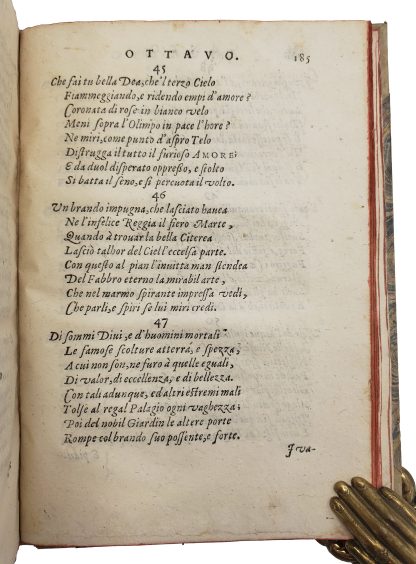 OTTAVO.
185
45
Che fai tu bella Dea, che'l terzo Cielo
Fiammeggiando, e ridendo empi d'amore?
Coronata di rose in bianco velo
Meni sopra l'Olimpo in pace l'hore?
Ne miri, come punto d'aspro Telo
Distrugga il tutto il furioso AMORE?
E da duol disperato oppresso, e stolto
Si batta il seno, e si percuota il volto.
46
Un brando impugna, che lasciato hauea
Ne l'infelice Reggia il fiero Marte,
Quando à trouar la bella Citerea
Lasciò talhor del Ciel l'eccelsa parte.
Con questo al pian l'inuitta man stendea
Del Fabbro eterno la mirabil arte,
Che nel marmo spirante impressa vedi,
Che parli, e spiri se lui miri credi.
47
Di sommi Diui, e d'huomini mortali
Le famose scolture atterra, e spezza,
A cui non son, ne furo à quelle eguali,
Di valor, di eccellenza, e di bellezza.
Con tali adunque, ed altri estremi mali
Tolse al regal Palagio ogni vaghezza;
Poi del nobil Giardin le altere porte
Rompe col brando suo possente, e forte.
Iva-